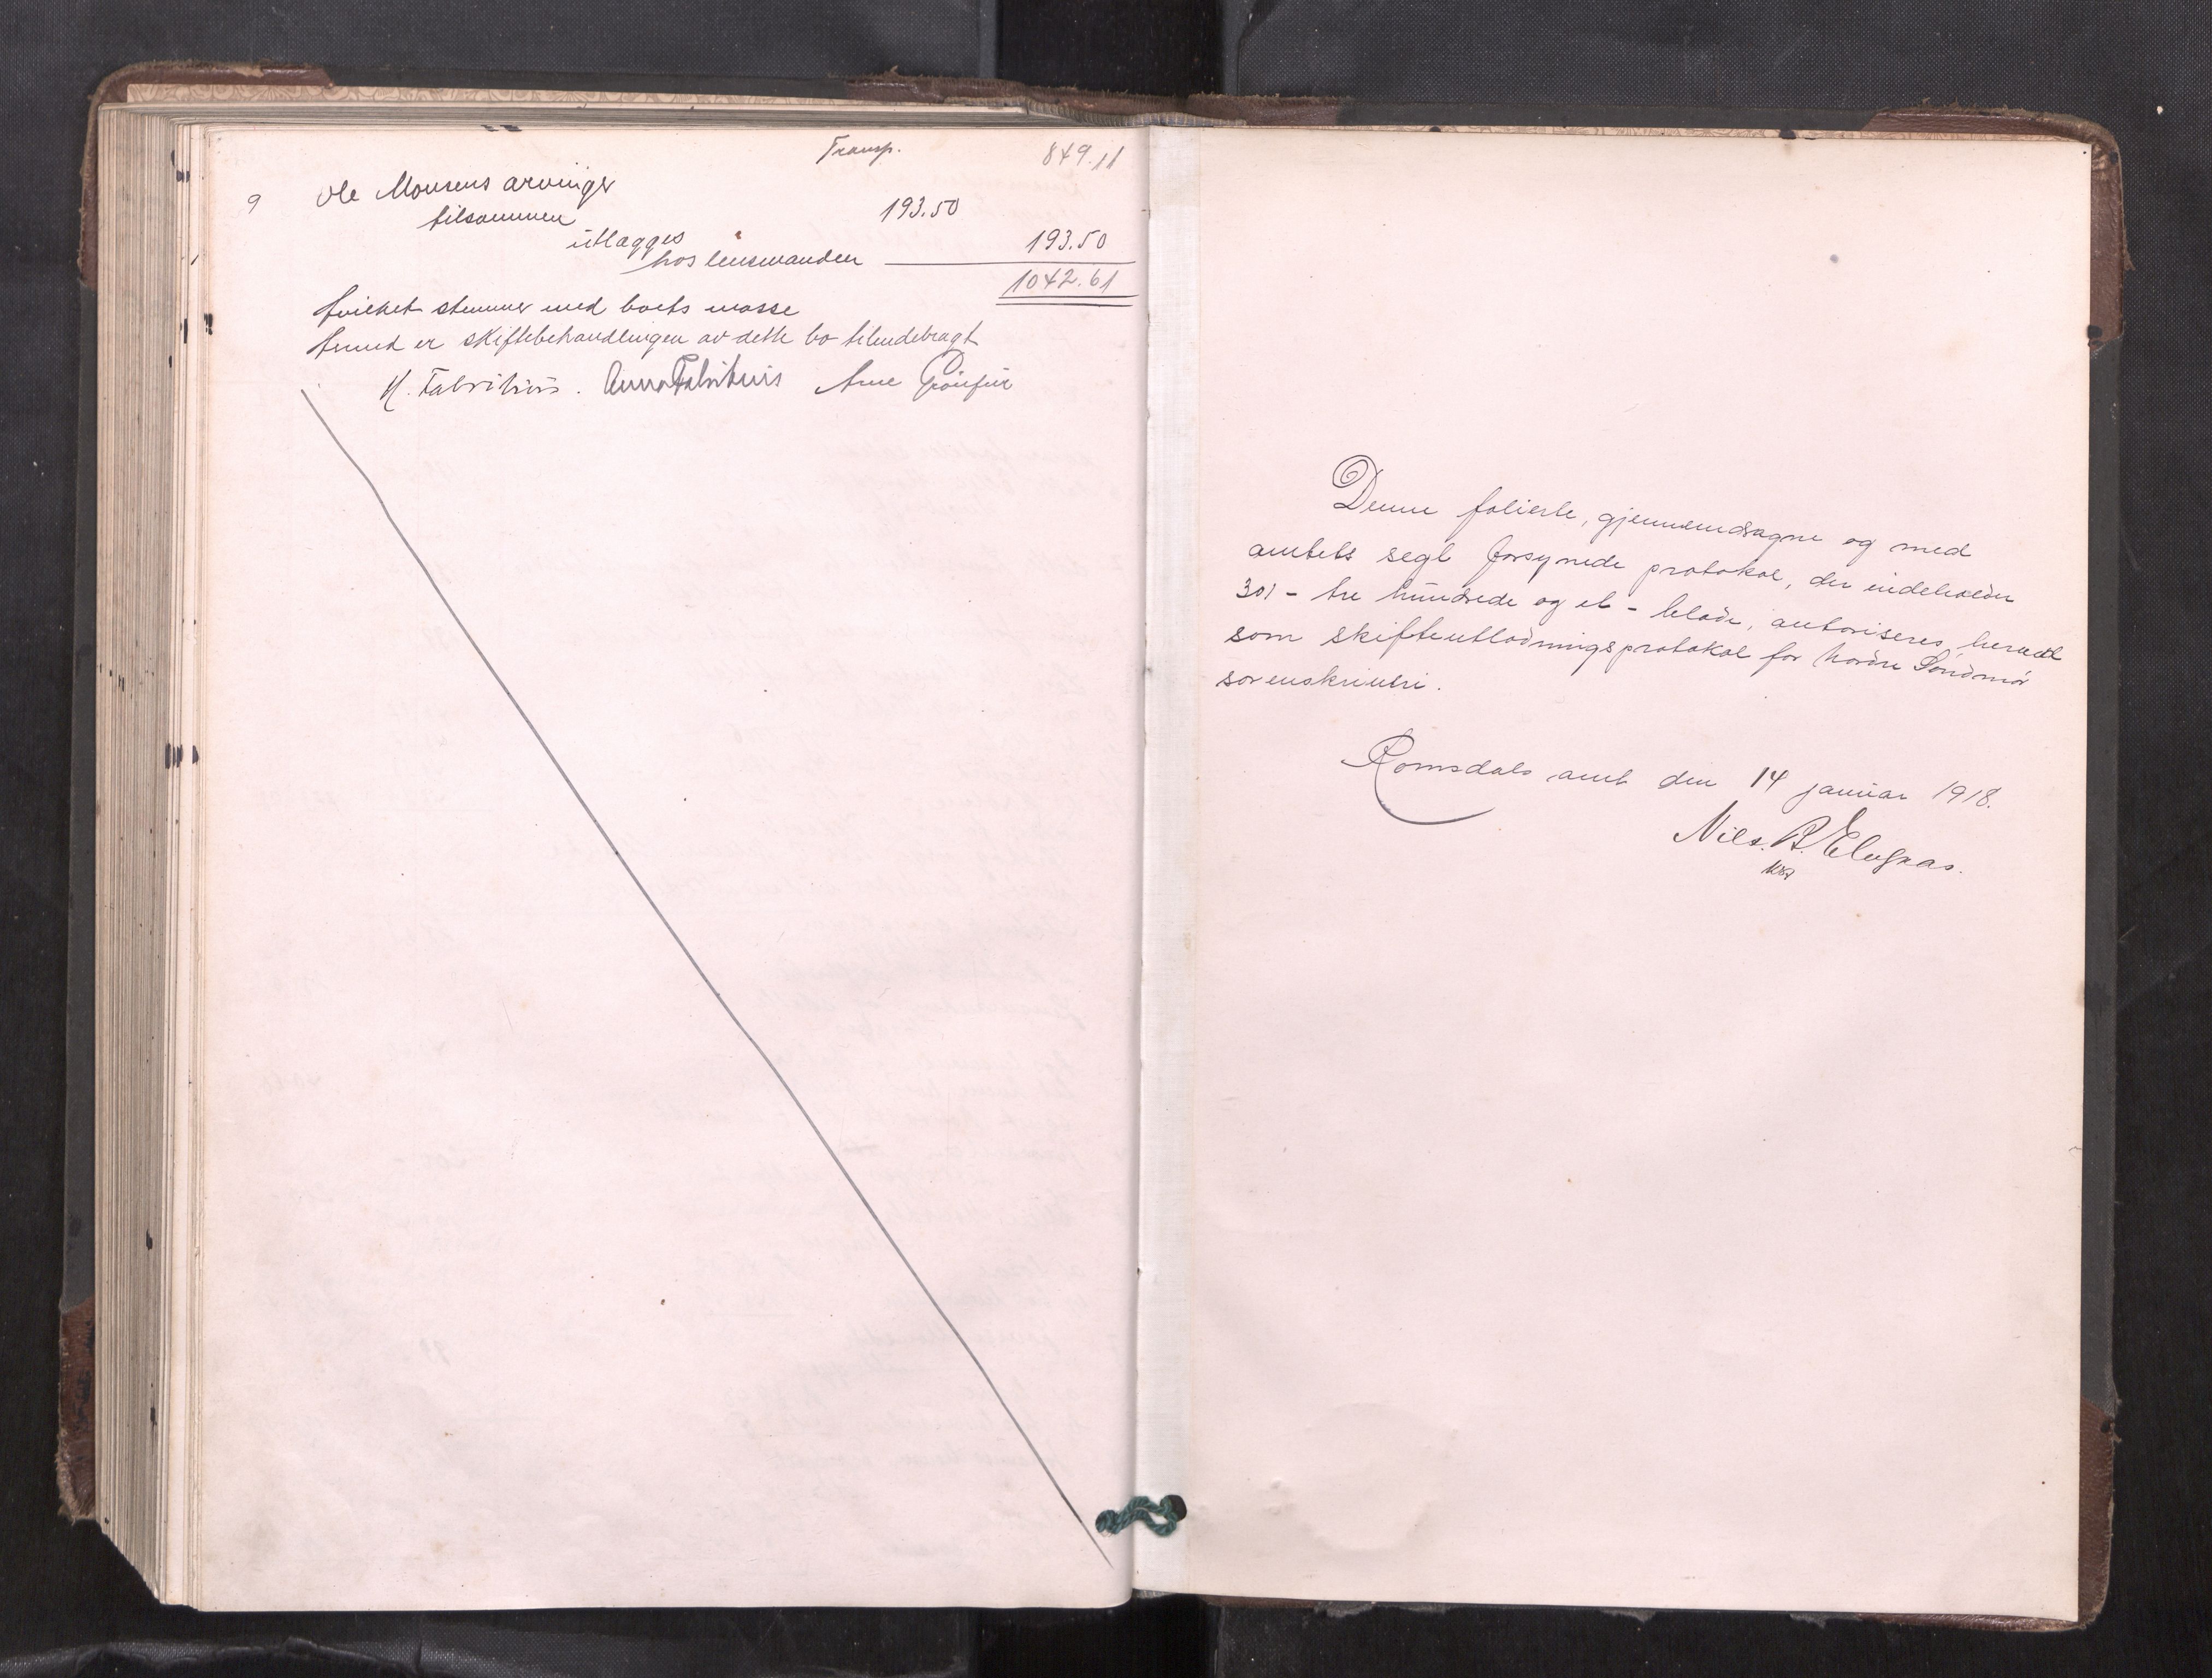 Transp. 849.11
9 Ole Monsens arvinger
tilsammen 193.50
utlægges 193.50
hos lensmanden
1042.61
hvilket stemmer med boets masse
hermed er skiftebehandlingen av dette bo tilendebragt
N. Fabritius. Anna Fabritius Arne
Denne folierte, gjennemdragne og med
amtets segl forsynede protokol, der indeholder
301 - tre hundrede og et - blade, autoriseres herved
som skifteutlodningsprotokol for nordre Søndmør
sorenskriveri.
Romsdals amt den 14 januar 1918.
Nils. R.